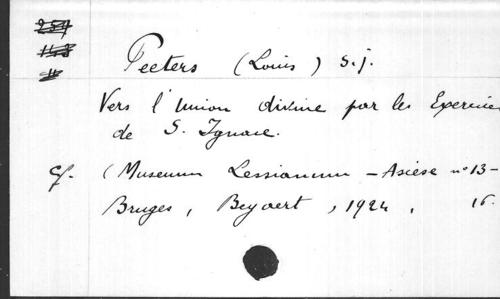 254
Peeters (Louis) S.j.
Vers l'Union divine par les Exercices
de S. Ignace.
cf. (Museum Lessianum - Ascèse n° 13-
Bruges, Beyaert, 1924, 16.